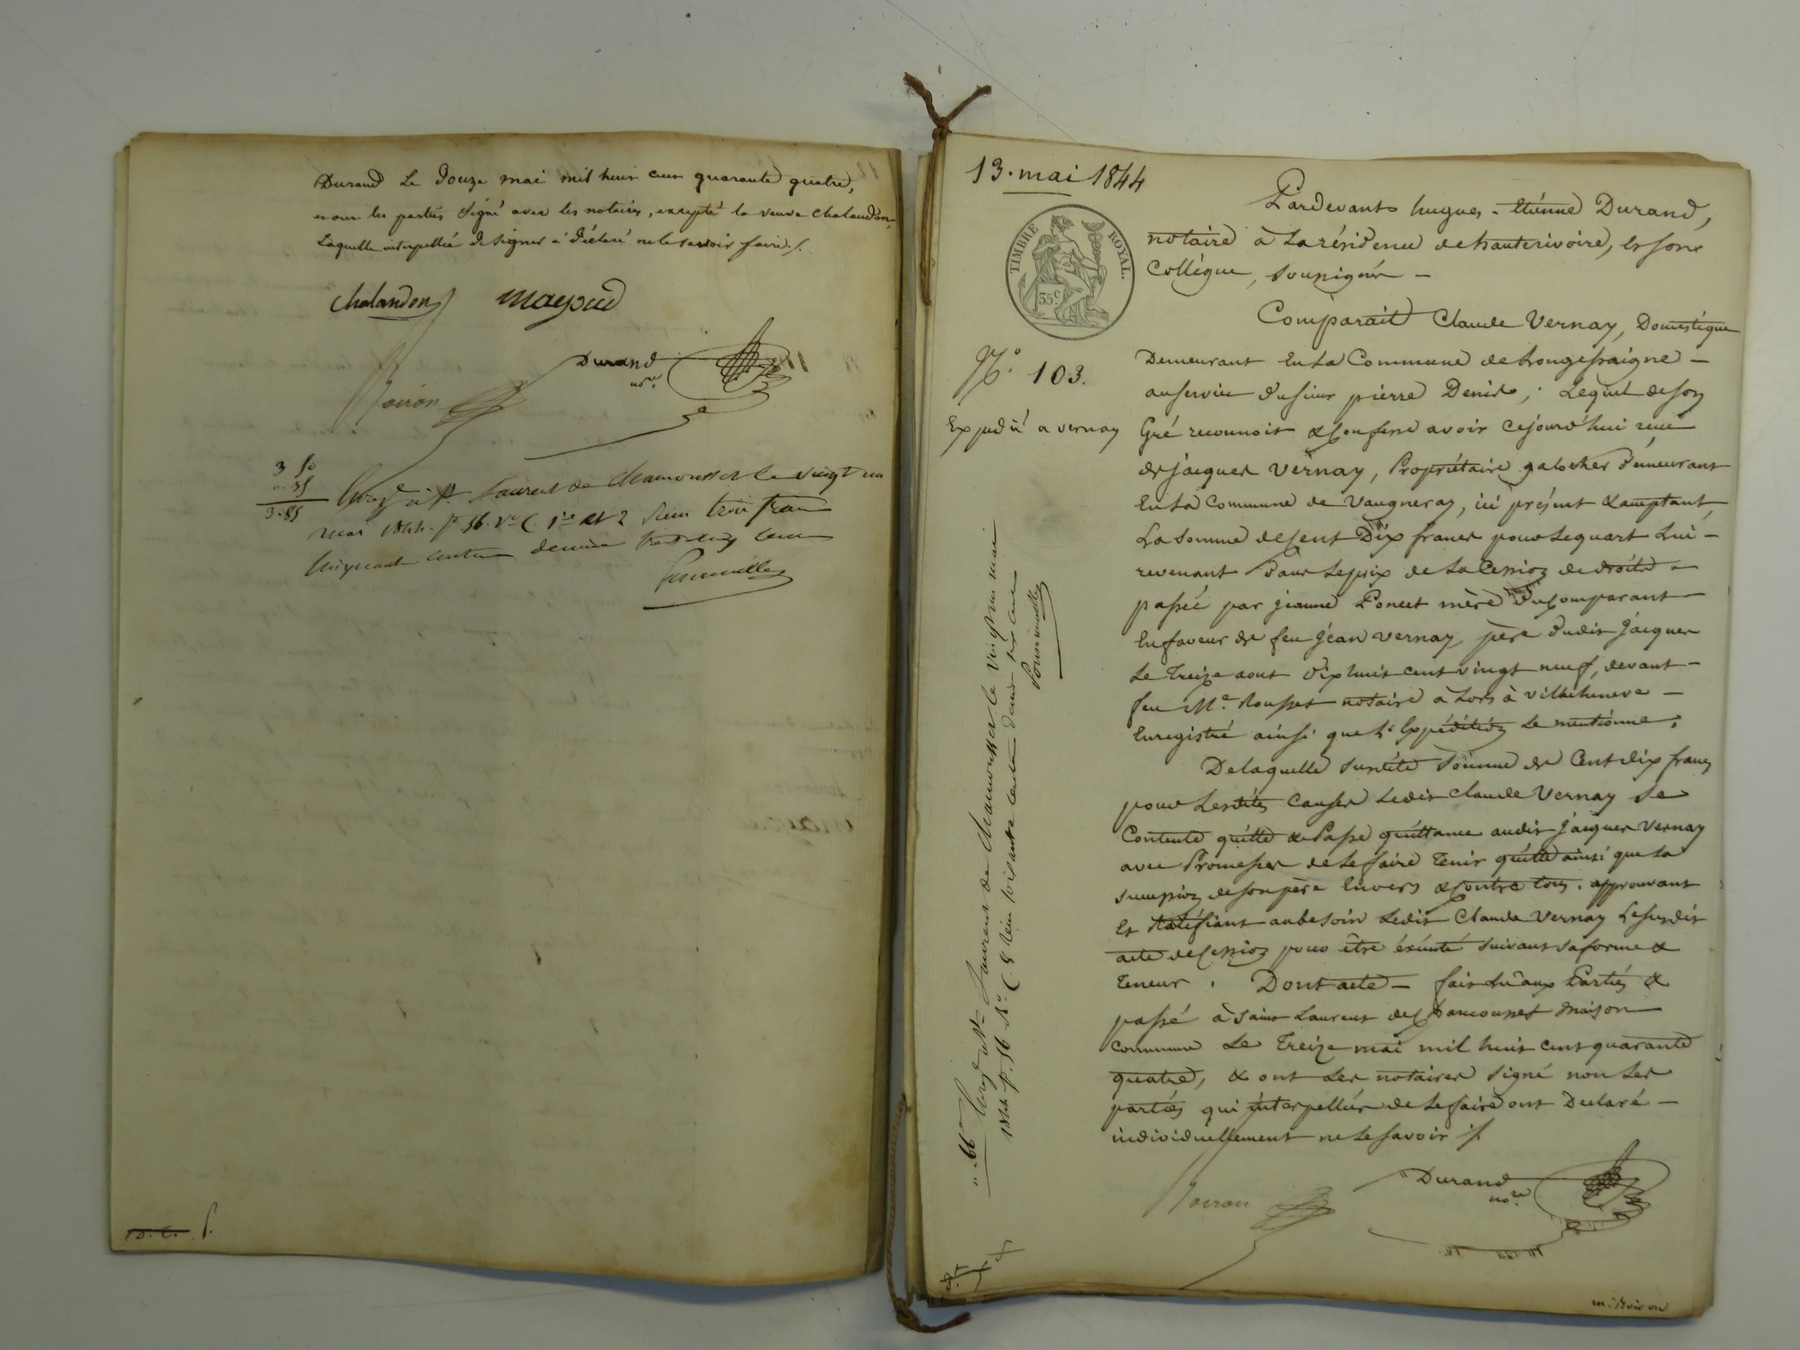 Durand le douze mai mil huit cent quarante quatre,
et ont les parties signé avec les notaires, excepté la veuve chalandon,
laquelle interpellée de signer a déclaré ne le savoir faire ./.
chalandon mayoud
Durand
nore.
Noiron
3 50
" 35
3.85
Enregé à St. Laurent de Chamousset le vingt un
mai 1844. fo. 56. vo. C. 1re et 2 Reçu trois francs
cinquante centimes décime trente cinq cent
D. C.
13. mai 1844
TIMBRE ROYAL.
35c
No. 103.
Expédié a vernay
Pardevant hugues-étiénne Durand,
notaire à la résidence de hauterivoire, et son
Collégue, soussignés —
Comparait Claude Vernay, Domestique
Demeurant en la Commune de Longessaigne —
au service du sieur pierre Denis ; Lequel de son
Gré reconnoit & Confesse avoir cejourd'hui reçu
de jacques Vernay, Propriétaire galocher demeurant
en la Commune de Vaugneray, ici présent & acceptant,
La somme de Cent Dix francs pour le quart Lui —
revenant dans le prix de la Cession de droits —
passée par jeanne Poncet mère du Comparant —
en faveur de feu jean vernay, père dudit jacques
Le treize aout dix huit cent vingt neuf, devant —
feu Me. Rousset notaire à Lors à villecheneve —
Enregistré ainsi que l'Expédition le mentionne.
De laquelle susdite somme de Cent dix francs
pour Lesdites Causes Ledit Claude Vernay se
Contente quitte & Passe quittance audit jacques Vernay
avec Promesses de le faire tenir quitte ainsi que la
succession de son père Envers & Contre tous. approuvant
Et Ratifiant au besoin Ledit Claude Vernay Le susdit
acte de Cession pour être éxécuté suivant sa forme &
teneur . Dont acte — fait lu aux Parties &
passé à Saint Laurent de Chamousset maison
commune Le Treize mai mil huit cent quarante
quatre, & ont Les notaires signé non Les
parties qui interpellées de le faire ont Déclaré —
individuellement ne le savoir ./.
Durand
nore.
Noiron
".66c Enregé à St. Laurent de Chamousset le vingt un mai
1844. fo. 56. Ro. C. 8 Reçu soixante centimes décime six cent
m. Noiron